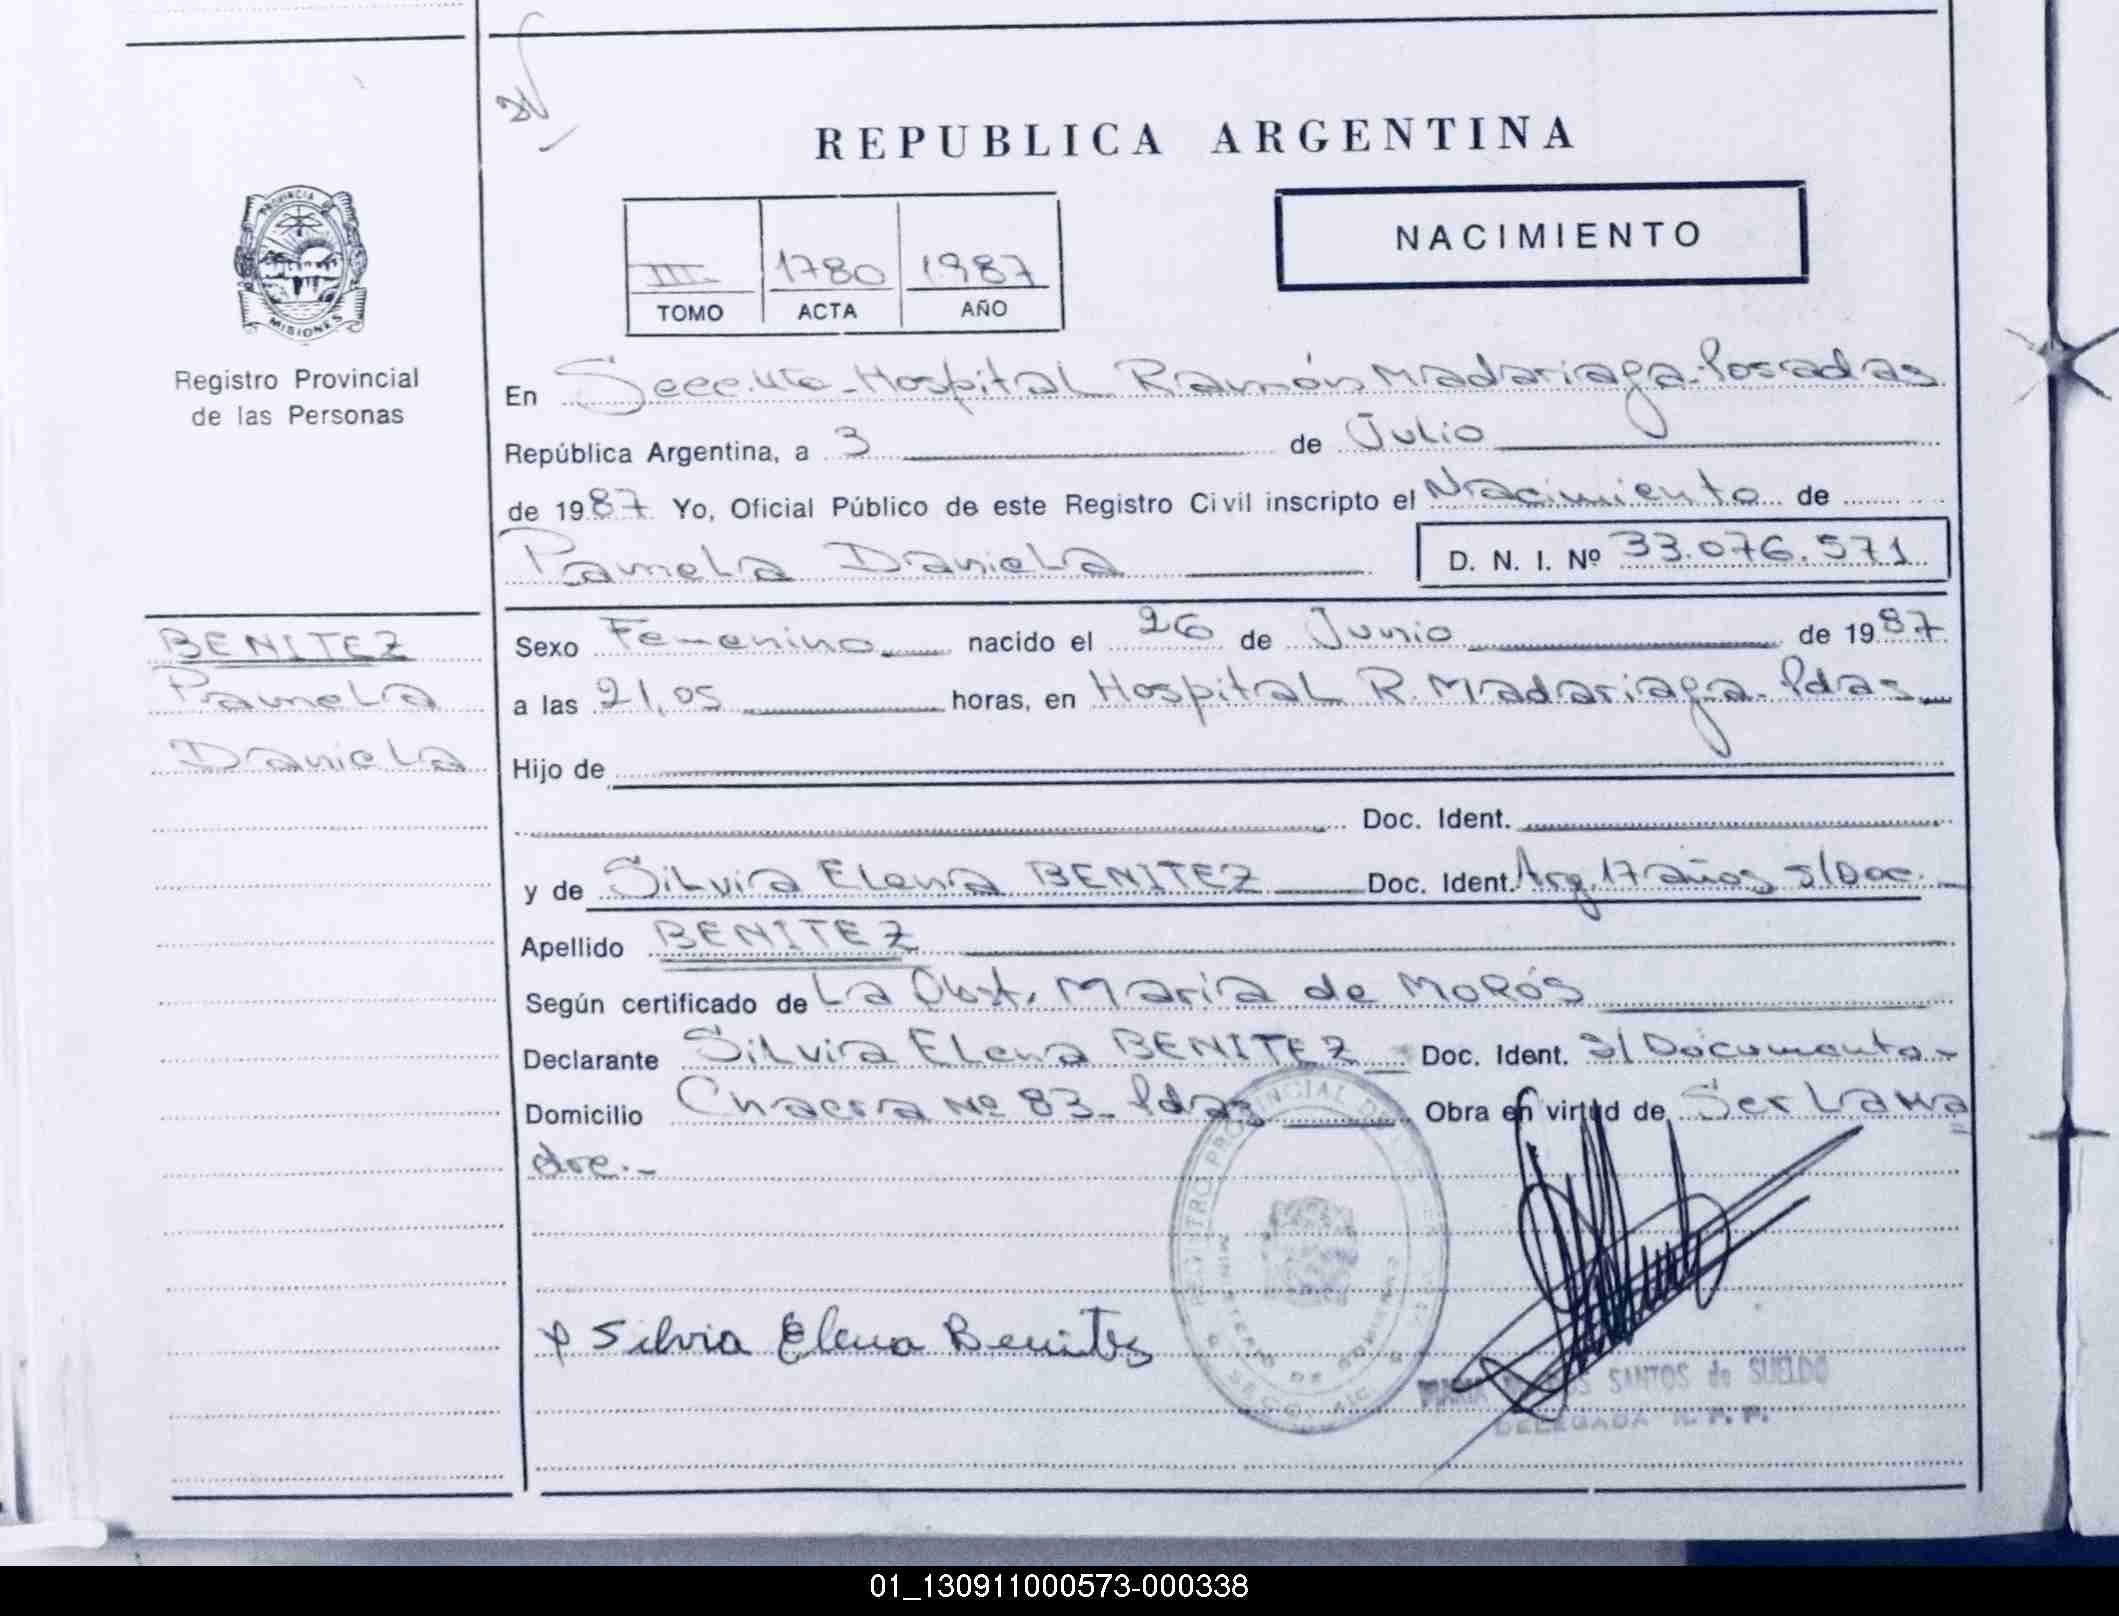 REPUBLICA ARGENTINA
NACIMIENTO
III 1780 1987
TOMO ACTA AÑO
PROVINCIA DE MISIONES
Registro Provincial
de las Personas
En Secc. Hospital Ramón Madariaga-Posadas
República Argentina, a 3 de Julio
de 1987 Yo, Oficial Público de este Registro Civil inscripto el Nacimiento de
Pamela Daniela D. N. I. Nº 33.076.571
BENITEZ
Pamela
Daniela
Sexo Femenino nacido el 26 de Junio de 1987
a las 21,05 horas, en Hospital R. Madariaga-Pdas
Hijo de
Doc. Ident.
y de Silvia Elena BENITEZ Doc. Ident. Arg. 17 años s/Doc.
Apellido BENITEZ
Según certificado de La Obst. Maria de Morós
Declarante Silvia Elena BENITEZ Doc. Ident. s/Documento-
Domicilio Chacra Nº 83-Pdas Obra en virtud de Ser La Ma
dre.-
REGISTRO PROVINCIAL DE LAS
MINISTERIO DE GOBIERNO
Silvia Elena Benitez
MARIA SANTOS de SUELDO
DELEGADA R. P. P.
01_130911000573-000338